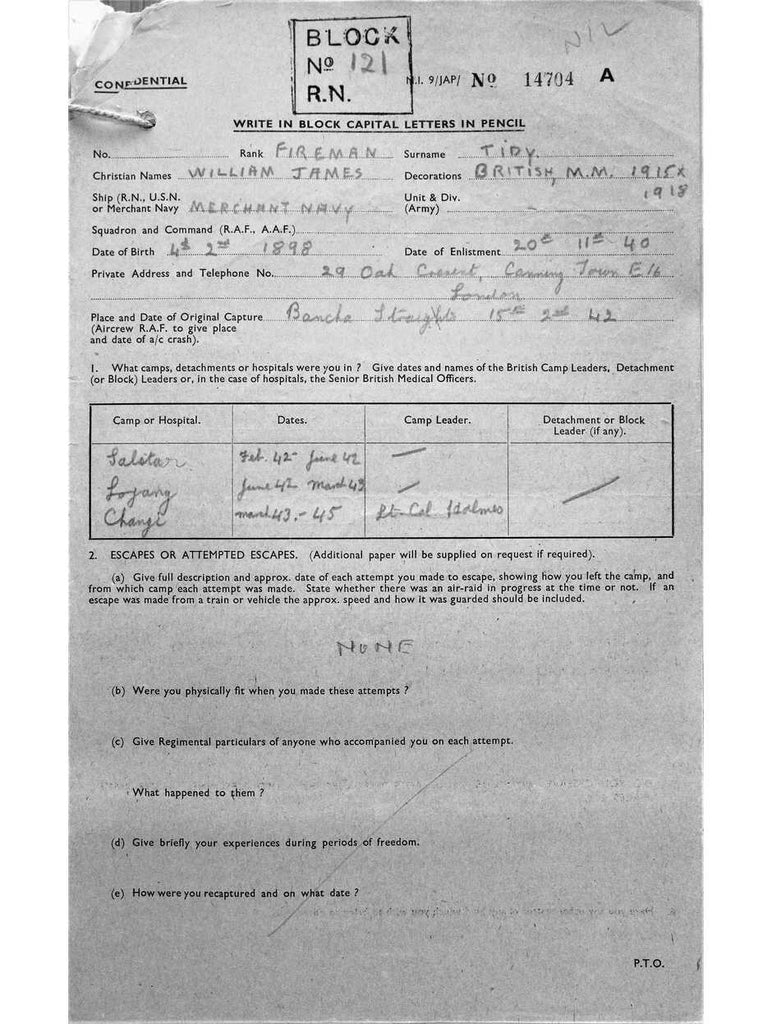 NIL
BLOCK
Nº 121
R.N.
CONFIDENTIAL
M.I. 9/JAP/ Nº 14704 A
WRITE IN BLOCK CAPITAL LETTERS IN PENCIL
No. Rank FIREMAN Surname TIDY.
Christian Names WILLIAM JAMES Decorations BRITISH, M.M. 1915X
1918
Ship (R.N., U.S.N. or Merchant Navy MERCHANT NAVY Unit & Div. (Army)
Squadron and Command (R.A.F., A.A.F.)
Date of Birth 4th 2nd 1898 Date of Enlistment 20th 11th 40
Private Address and Telephone No. 29 Oak Cresent, Canning Town E16
London
Place and Date of Original Capture Bancha Straights 15th 2nd 42
(Aircrew R.A.F. to give place
and date of a/c crash).
1. What camps, detachments or hospitals were you in ? Give dates and names of the British Camp Leaders, Detachment
(or Block) Leaders or, in the case of hospitals, the Senior British Medical Officers.
Camp or Hospital. Dates. Camp Leader. Detachment or Block
Leader (if any).
Feb. 42 - June 42
June 42 March 43
Changi March 43. - 45 Lt. Col Holmes
2. ESCAPES OR ATTEMPTED ESCAPES. (Additional paper will be supplied on request if required).
(a) Give full description and approx. date of each attempt you made to escape, showing how you left the camp, and
from which camp each attempt was made. State whether there was an air-raid in progress at the time or not. If an
escape was made from a train or vehicle the approx. speed and how it was guarded should be included.
NONE
(b) Were you physically fit when you made these attempts ?
(c) Give Regimental particulars of anyone who accompanied you on each attempt.
What happened to them ?
(d) Give briefly your experiences during periods of freedom.
(e) How were you recaptured and on what date ?
P.T.O.